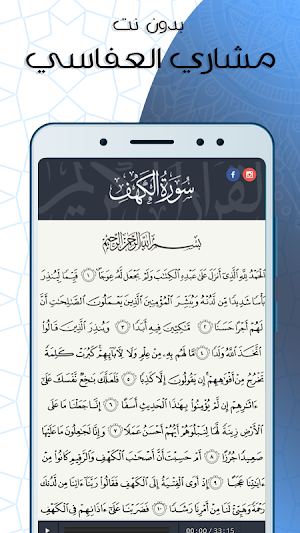 بدون نت
مشاري العفاسي
سُورَةُ الْكَهْفِ
بِسْمِ اللَّهِ الرَّحْمَٰنِ الرَّحِيمِ
الْحَمْدُ لِلَّهِ الَّذِي أَنزَلَ عَلَىٰ عَبْدِهِ الْكِتَابَ وَلَمْ يَجْعَل لَّهُ عِوَجَا ۜ ١ قَيِّمًا لِّيُنذِرَ
بَأْسًا شَدِيدًا مِّن لَّدُنْهُ وَيُبَشِّرَ الْمُؤْمِنِينَ الَّذِينَ يَعْمَلُونَ الصَّالِحَاتِ أَنَّ
لَهُمْ أَجْرًا حَسَنًا ٢ مَّاكِثِينَ فِيهِ أَبَدًا ٣ وَيُنذِرَ الَّذِينَ قَالُوا
اتَّخَذَ اللَّهُ وَلَدًا ٤ مَّا لَهُم بِهِ مِنْ عِلْمٍ وَلَا لِآبَائِهِمْ كَبُرَتْ كَلِمَةً
تَخْرُجُ مِنْ أَفْوَاهِهِمْ إِن يَقُولُونَ إِلَّا كَذِبًا ٥ فَلَعَلَّكَ بَاخِعٌ نَّفْسَكَ عَلَىٰ
آثَارِهِمْ إِن لَّمْ يُؤْمِنُوا بِهَٰذَا الْحَدِيثِ أَسَفًا ٦ إِنَّا جَعَلْنَا مَا عَلَى
الْأَرْضِ زِينَةً لَّهَا لِنَبْلُوَهُمْ أَيُّهُمْ أَحْسَنُ عَمَلًا ٧ وَإِنَّا لَجَاعِلُونَ مَا عَلَيْهَا
صَعِيدًا جُرُزًا ٨ أَمْ حَسِبْتَ أَنَّ أَصْحَابَ الْكَهْفِ وَالرَّقِيمِ كَانُوا مِنْ
آيَاتِنَا عَجَبًا ٩ إِذْ أَوَى الْفِتْيَةُ إِلَى الْكَهْفِ فَقَالُوا رَبَّنَا آتِنَا مِن لَّدُنكَ
رَحْمَةً وَهَيِّئْ لَنَا مِنْ أَمْرِنَا رَشَدًا ١٠ فَضَرَبْنَا عَلَىٰ آذَانِهِمْ فِي الْكَهْفِ
00:00 / 33:15